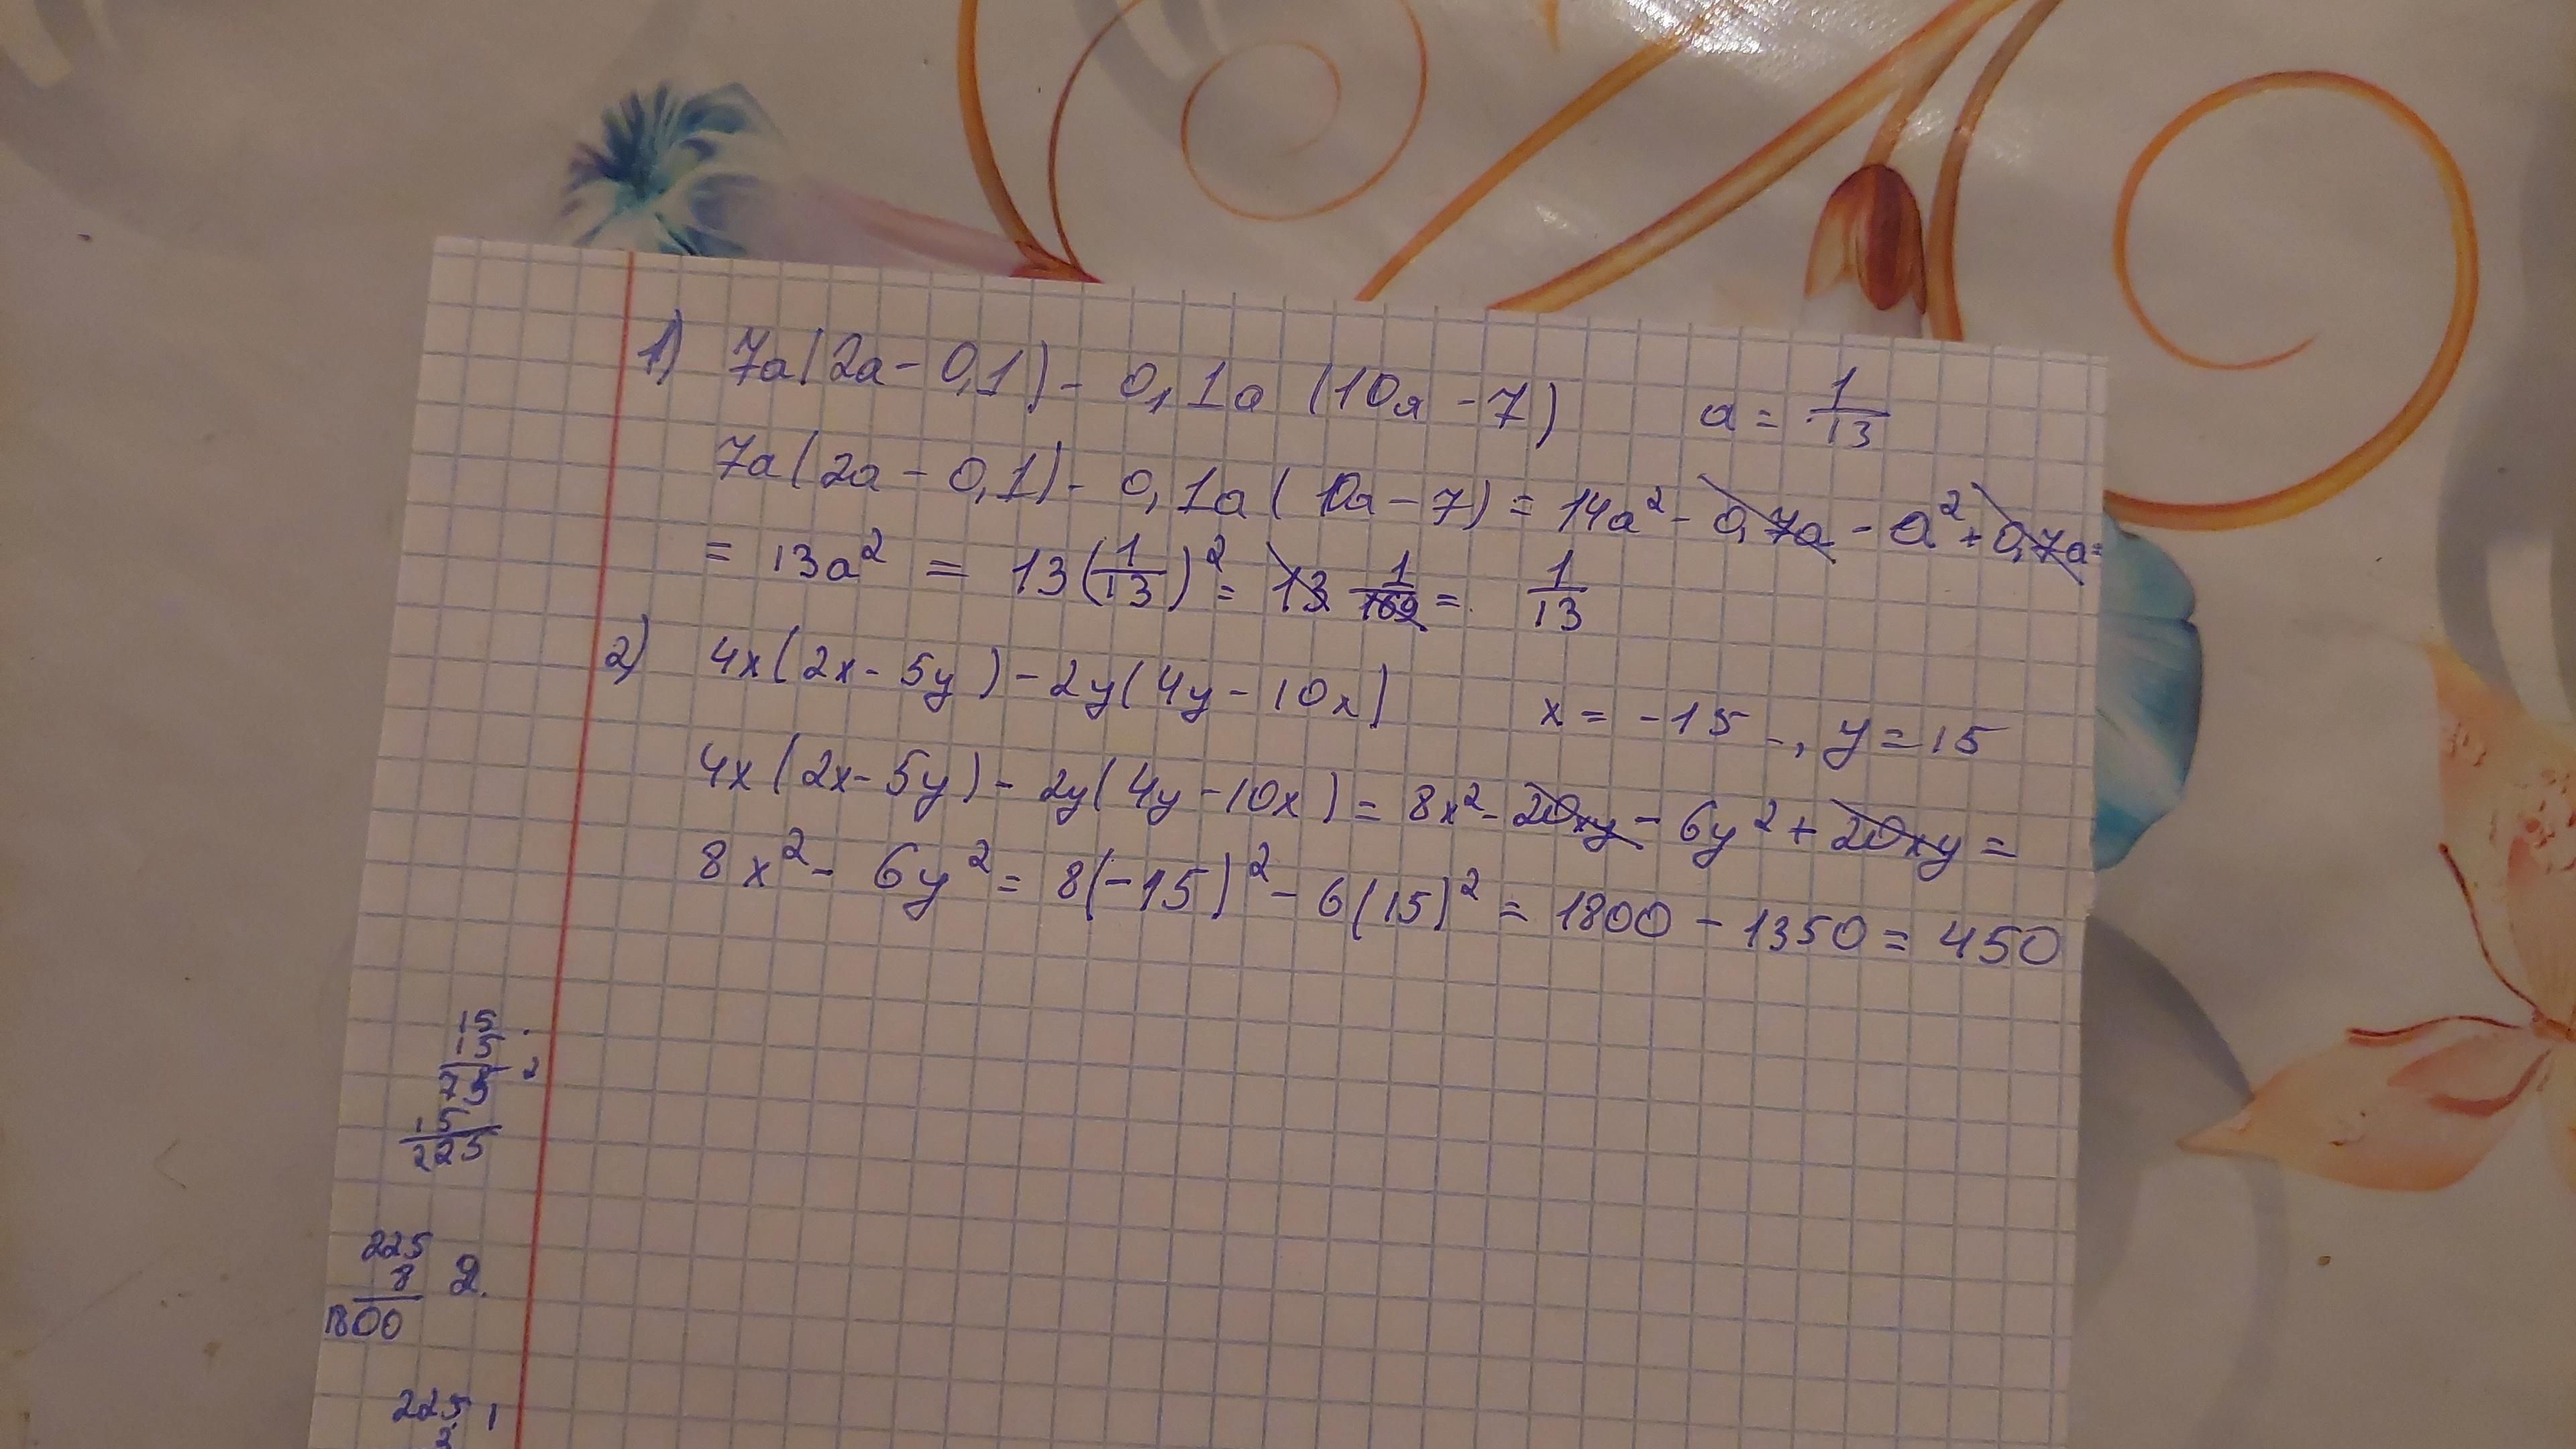 1) 7a(2a - 0,1) - 0,1a (10a - 7) a = 1/13
7a(2a - 0,1) - 0,1a (10a - 7) = 14a² - 0,7a - a² + 0,7a =
= 13a² = 13(1/13)² = 13 1/169 = 1/13
2) 4x(2x - 5y) - 2y(4y - 10x) x = -15, y = 15
4x(2x - 5y) - 2y(4y - 10x) = 8x² - 20xy - 6y² + 20xy =
8x² - 6y² = 8(-15)² - 6(15)² = 1800 - 1350 = 450
15
15
75 2
15
225
225
8 2
1800
225 1
2